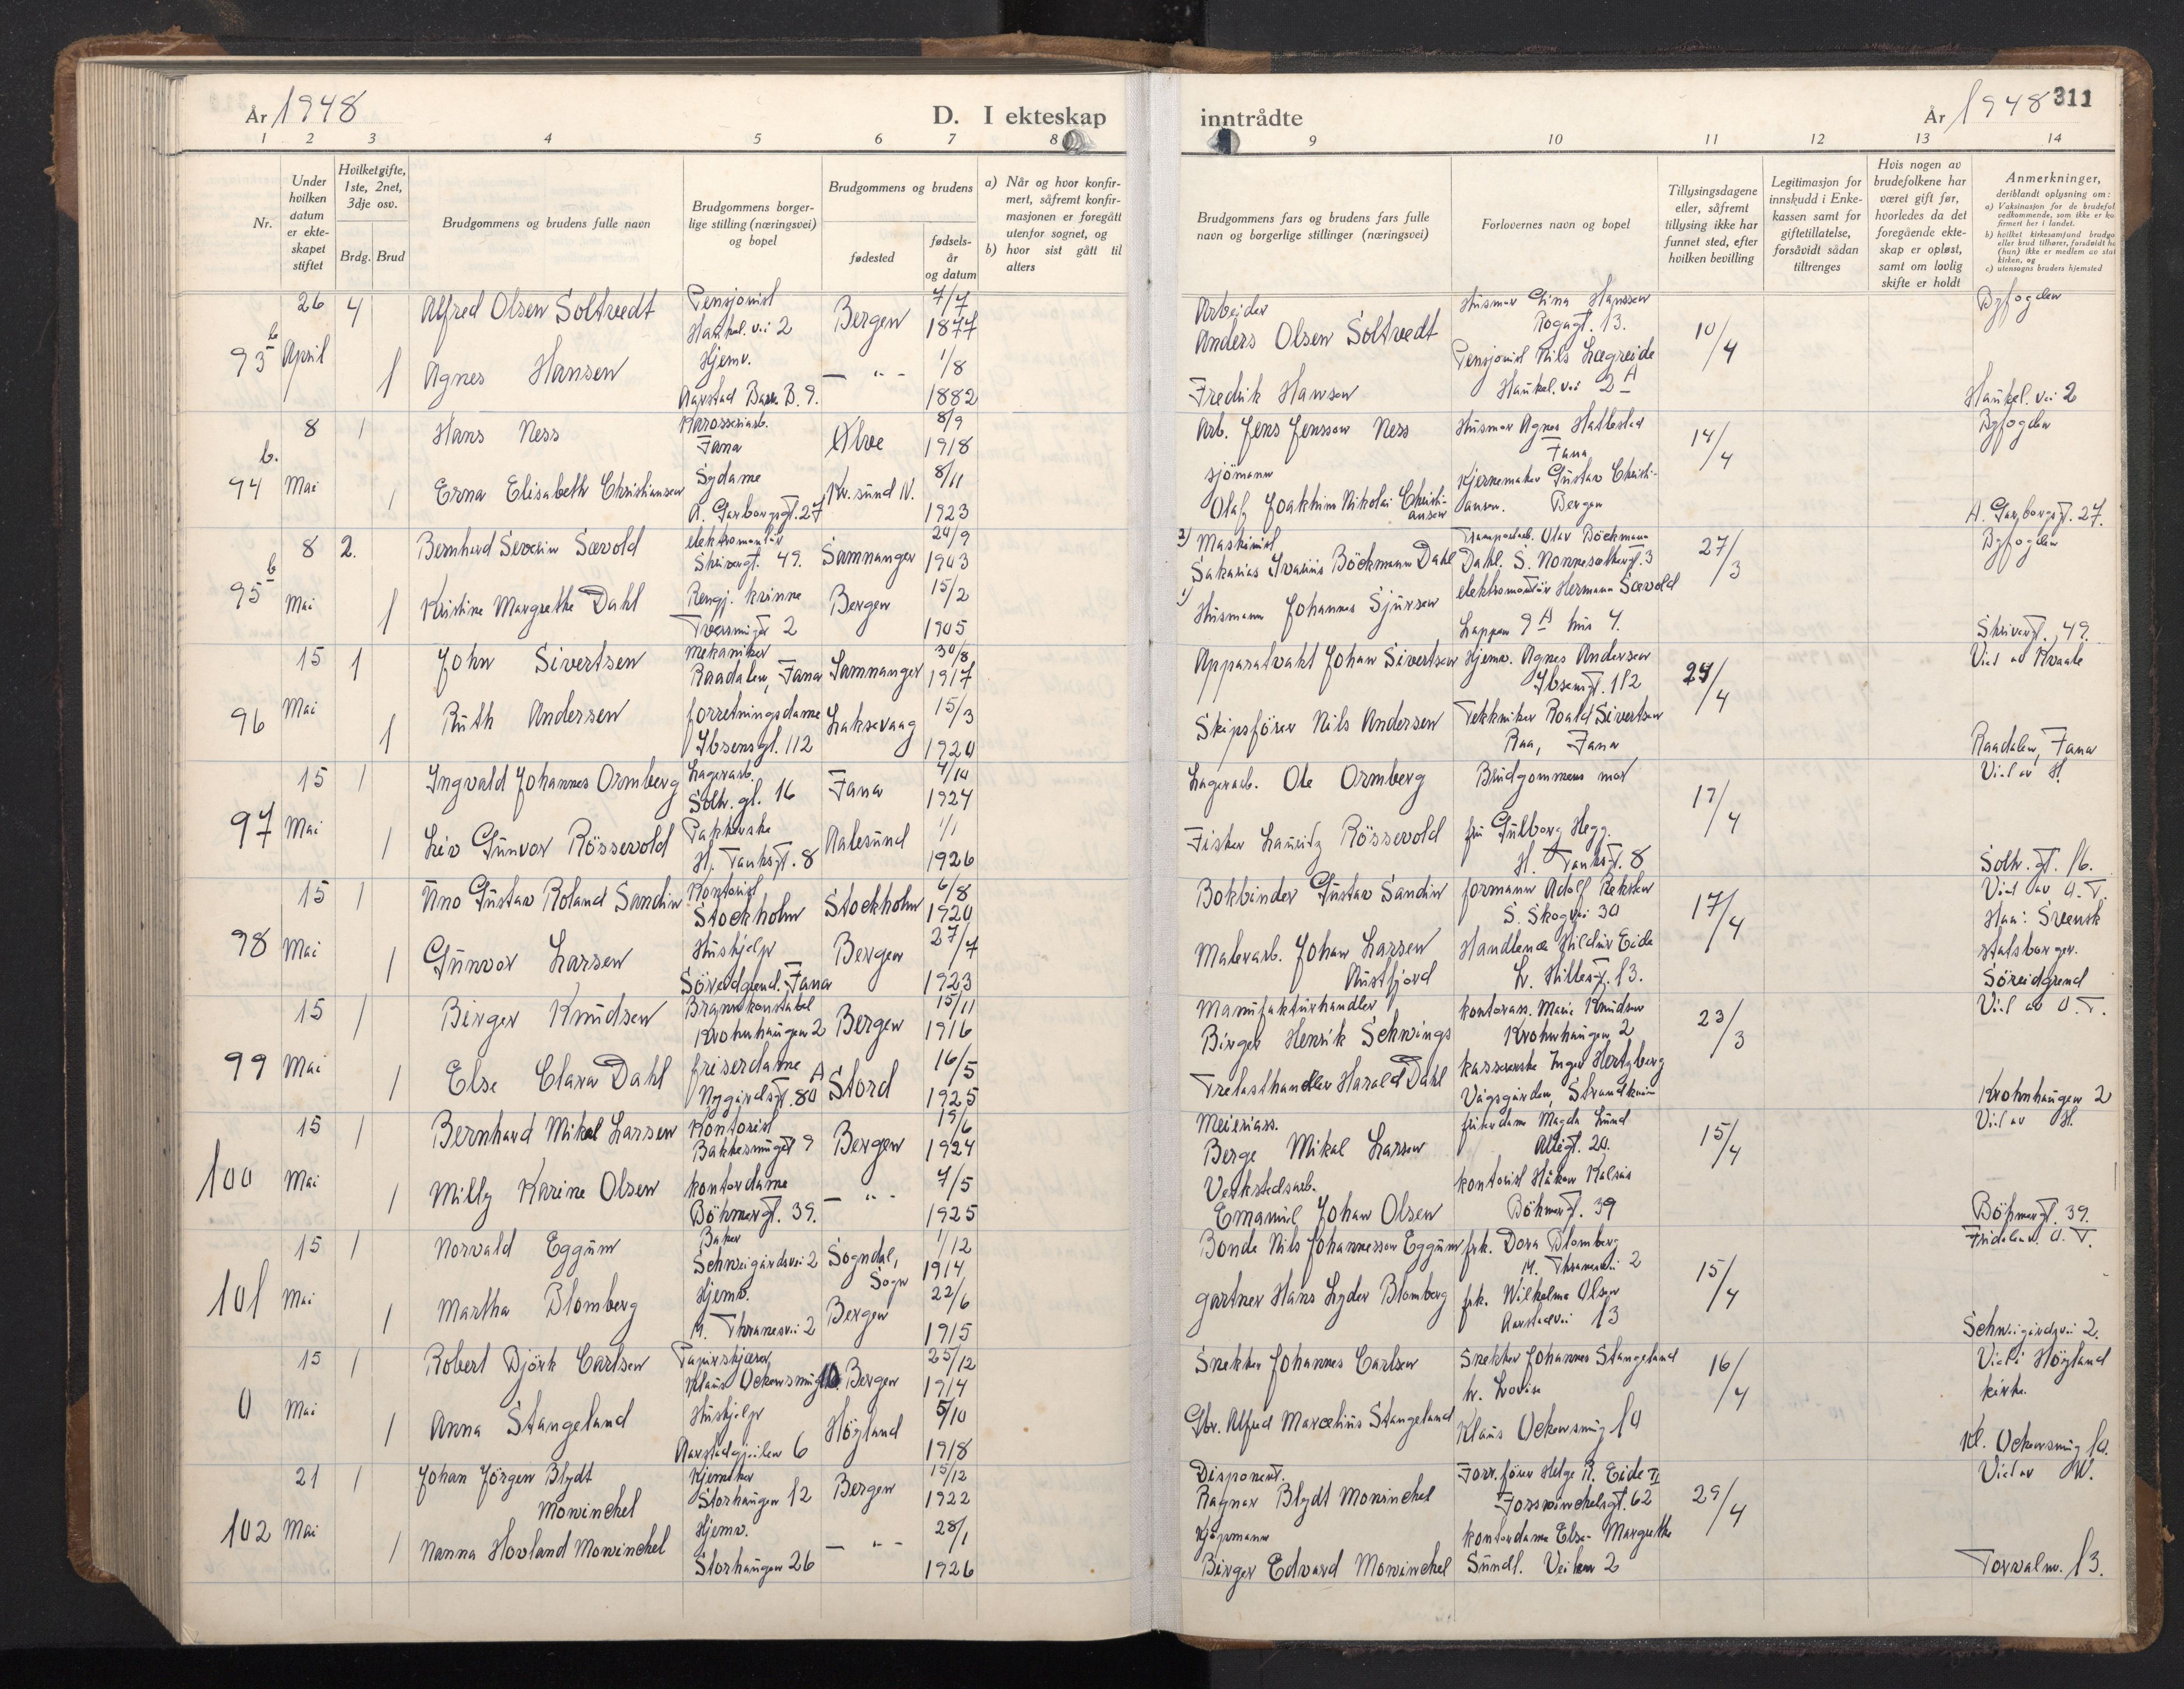 År 1948
D. I ekteskap
inntrådte
År 1948
311
1 2 3 4 5 6 7 8
9 10 11 12 13 14
Nr.
Under hvilken datum er ekteskapet stiftet
Hvilket gifte, 1ste, 2net, 3dje osv.
Brdg. Brud
Brudgommens og brudens fulle navn
Brudgommens borgerlige stilling (næringsvei) og bopel
Brudgommens og brudens
fødested
fødselsår og datum
a) Når og hvor konfirmert, såfremt konfirmasjonen er foregått utenfor sognet, og
b) hvor sist gått til alters
Brudgommens fars og brudens fars fulle navn og borgerlige stillinger (næringsvei)
Forlovernes navn og bopel
Tillysingsdagene eller, såfremt tillysing ikke har funnet sted, efter hvilken bevilling
Legitimasjon for innskudd i Enkekassen samt for giftetillatelse, forsåvidt sådan tiltrenges
Hvis nogen av brudefolkene har været gift før, hvorledes da det foregående ekteskap er opløst, samt om lovlig skifte er holdt
Anmerkninger,
deriblandt oplysning om:
a) Vaksinasjon for de brudefol
vedkommende, som ikke er ko
firmert her i landet.
b) hvilket kirkesamfund brudgo
eller brud tilhører, forsåvidt ha
(hun) ikke er medlem av stat
kirken, og
c) utensogns bruders hjemsted
93 b 26 April 4 Alfred Olsen Soltvedt Pensjonist Haukel. vei 2 Bergen 7/7 1877
Arbeider Anders Olsen Soltvedt Husmor Lina Hanssen Rogagt. 13. 10/4 Byfogden
1 Agnes Hansen Hjemv. Aarstad B. 9. — " - 1/8 1882
Fredrik Hansen Pensjonist Nils Lægreide Haukel. vei 2 A Haukel. vei 2
94 b. 8 Mai 1 Hans Ness Karosseriarb. Fana 8/9 1918
Arb. Jens Jenssen Ness Husmor Agnes Hatlestad Fana 14/4 Byfogden
1 Erna Elisabeth Christiansen Sydame A. Garborgsgt. 27 Kr.sund N. 8/11 1923
sjömann Olaf Joakhim Nikolai Christiansen Kjernemaker Gustav Christiansen. Bergen A. Garborgsgt. 27.
95 b 8 Mai 2. Bernhard Severin Sævold elektromontör Skivergt. 49. Samnanger 24/9 1903
2) Maskinist Sakarias Ivarius Böckmann Dahl Transportarb. Olav Böckmann Dahl. S. Nonnesætergt. 3 27/3 Byfogden
1 Kristine Margrethe Dahl Rengj. kvinne Tversmuget 2 Bergen 15/2 1905
1) Husmann Johannes Sjursen elektromontör Herman Sævold Lappen 9 A hus 4. Skivergt. 49.
96 15 Mai 1 John Sivertsen mekaniker Raadalen, Fana Samnanger 30/8 1917
Apparatvakt Johan Sivertsen Hjemv. Agnes Andersen Ibsensgt. 112 24/4 Viet av Kvaale
1 Ruth Andersen forretningsdame Ibsensgt. 112 Laksevaag 15/3 1920
Skipsförer Nils Andersen Tekkniker Roald Sivertsen Raa, Fana Raadalen, Fana
97 15 Mai 1 Ingvald Johannes Ormberg Lagerarb. Solh. gt. 16 Fana 4/10 1924
Lagerarb. Ole Ormberg Brudgommens mor 17/4 Viet av H.
1 Liv Gunvor Rössevold Pakkerske H. Tanksgt. 8 Aalesund 1/1 1926
Fisker Lauritz Rössevold fru Gulborg Hegg. H. Tanksgt. 8 Solh. gt. 16.
98 15 Mai 1 Uno Gustav Roland Sandin Kontorist Stockholm Stockholm 6/8 1920
Bokbinder Gustav Sandin formann Adolf Reksten S. Skogvei 30 17/4 Viet av O.T. Han: Svensk statsborger.
1 Gunvor Larsen Hushjelp Söreidgrend. Fana Bergen 27/7 1923
Malerarb. Johan Larsen Austfjord Handlende Hildur Eide L. Hillesgt. 13. Söreidgrend
99 15 Mai 1 Birger Knudsen Brannkonstabel Krohnhaugen 2 Bergen 15/11 1916
Manufakturhandler Birger Henrik Schwings kontorass. Marie Knudsen Krohnhaugen 2 23/3 Viet av O.T.
1 Else Clara Dahl friserdame Nygårdsgt. 80 A Stord 16/5 1925
Trelasthandler Harald Dahl kassererske Inger Hertzberg Vågsgården, Strandkaien Krohnhaugen 2
100 15 Mai 1 Bernhard Mikal Larsen Kontorist Bakkesmuget 9 Bergen 19/6 1924
Meieriass. Berge Mikal Larsen friserdame Magda Lund Allegt. 20. 15/4 Viet av H.
1 Milly Karine Olsen kontordame Böhmergt. 39. — " - 7/5 1925
Verkstedsarb. Emanuel Johan Olsen kontorist Håkon Kalsås Böhmergt. 39 Böhmergt. 39.
101 15 Mai 1 Norvald Eggum Baker Schweigårdsvei 2 Sogndal, Sogn 1/12 1914
Bonde Nils Johannessen Eggum frk. Dora Blomberg M. Thranesvei 2 15/4 Fridalen. O.T.
1 Martha Blomberg Hjemv. M. Thranesvei 2 Bergen 22/6 1915
gartner Hans Lyder Blomberg frk. Wilhelma Olsen Aarstadvei 13 Schweigårdsvei 2.
0 15 Mai 1 Robert Björk Carlsen Papirskjærer Klaus Ockensmug 10 Bergen 25/12 1914
Snekker Johannes Carlsen Snekker Johannes Stangeland h. Lovise 16/4 Viet i Höyland kirke.
1 Anna Stangeland Hushjelp Aarstadgjeilen 6 Höyland 5/10 1918
Gbr. Alfred Marcelius Stangeland Klaus Ockensmug 10 Kl. Ockensmug 10.
102 21 Mai 1 Johan Jörgen Blydt Mowinckel Kjemiker Storhaugen 12 Bergen 15/12 1922
Disponent. Ragnar Blydt Mowinckel Forr.förer Helge R. Eide Fosswinckelsgt. 62 29/4 Viet av W.
1 Nanna Hovland Mowinckel Hjemv. Storhaugen 26 — " - 28/1 1926
Kjöpmann Birger Edvard Mowinckel kontordame Else-Margrethe Sundt. Veiten 2 Torvalm. 13.